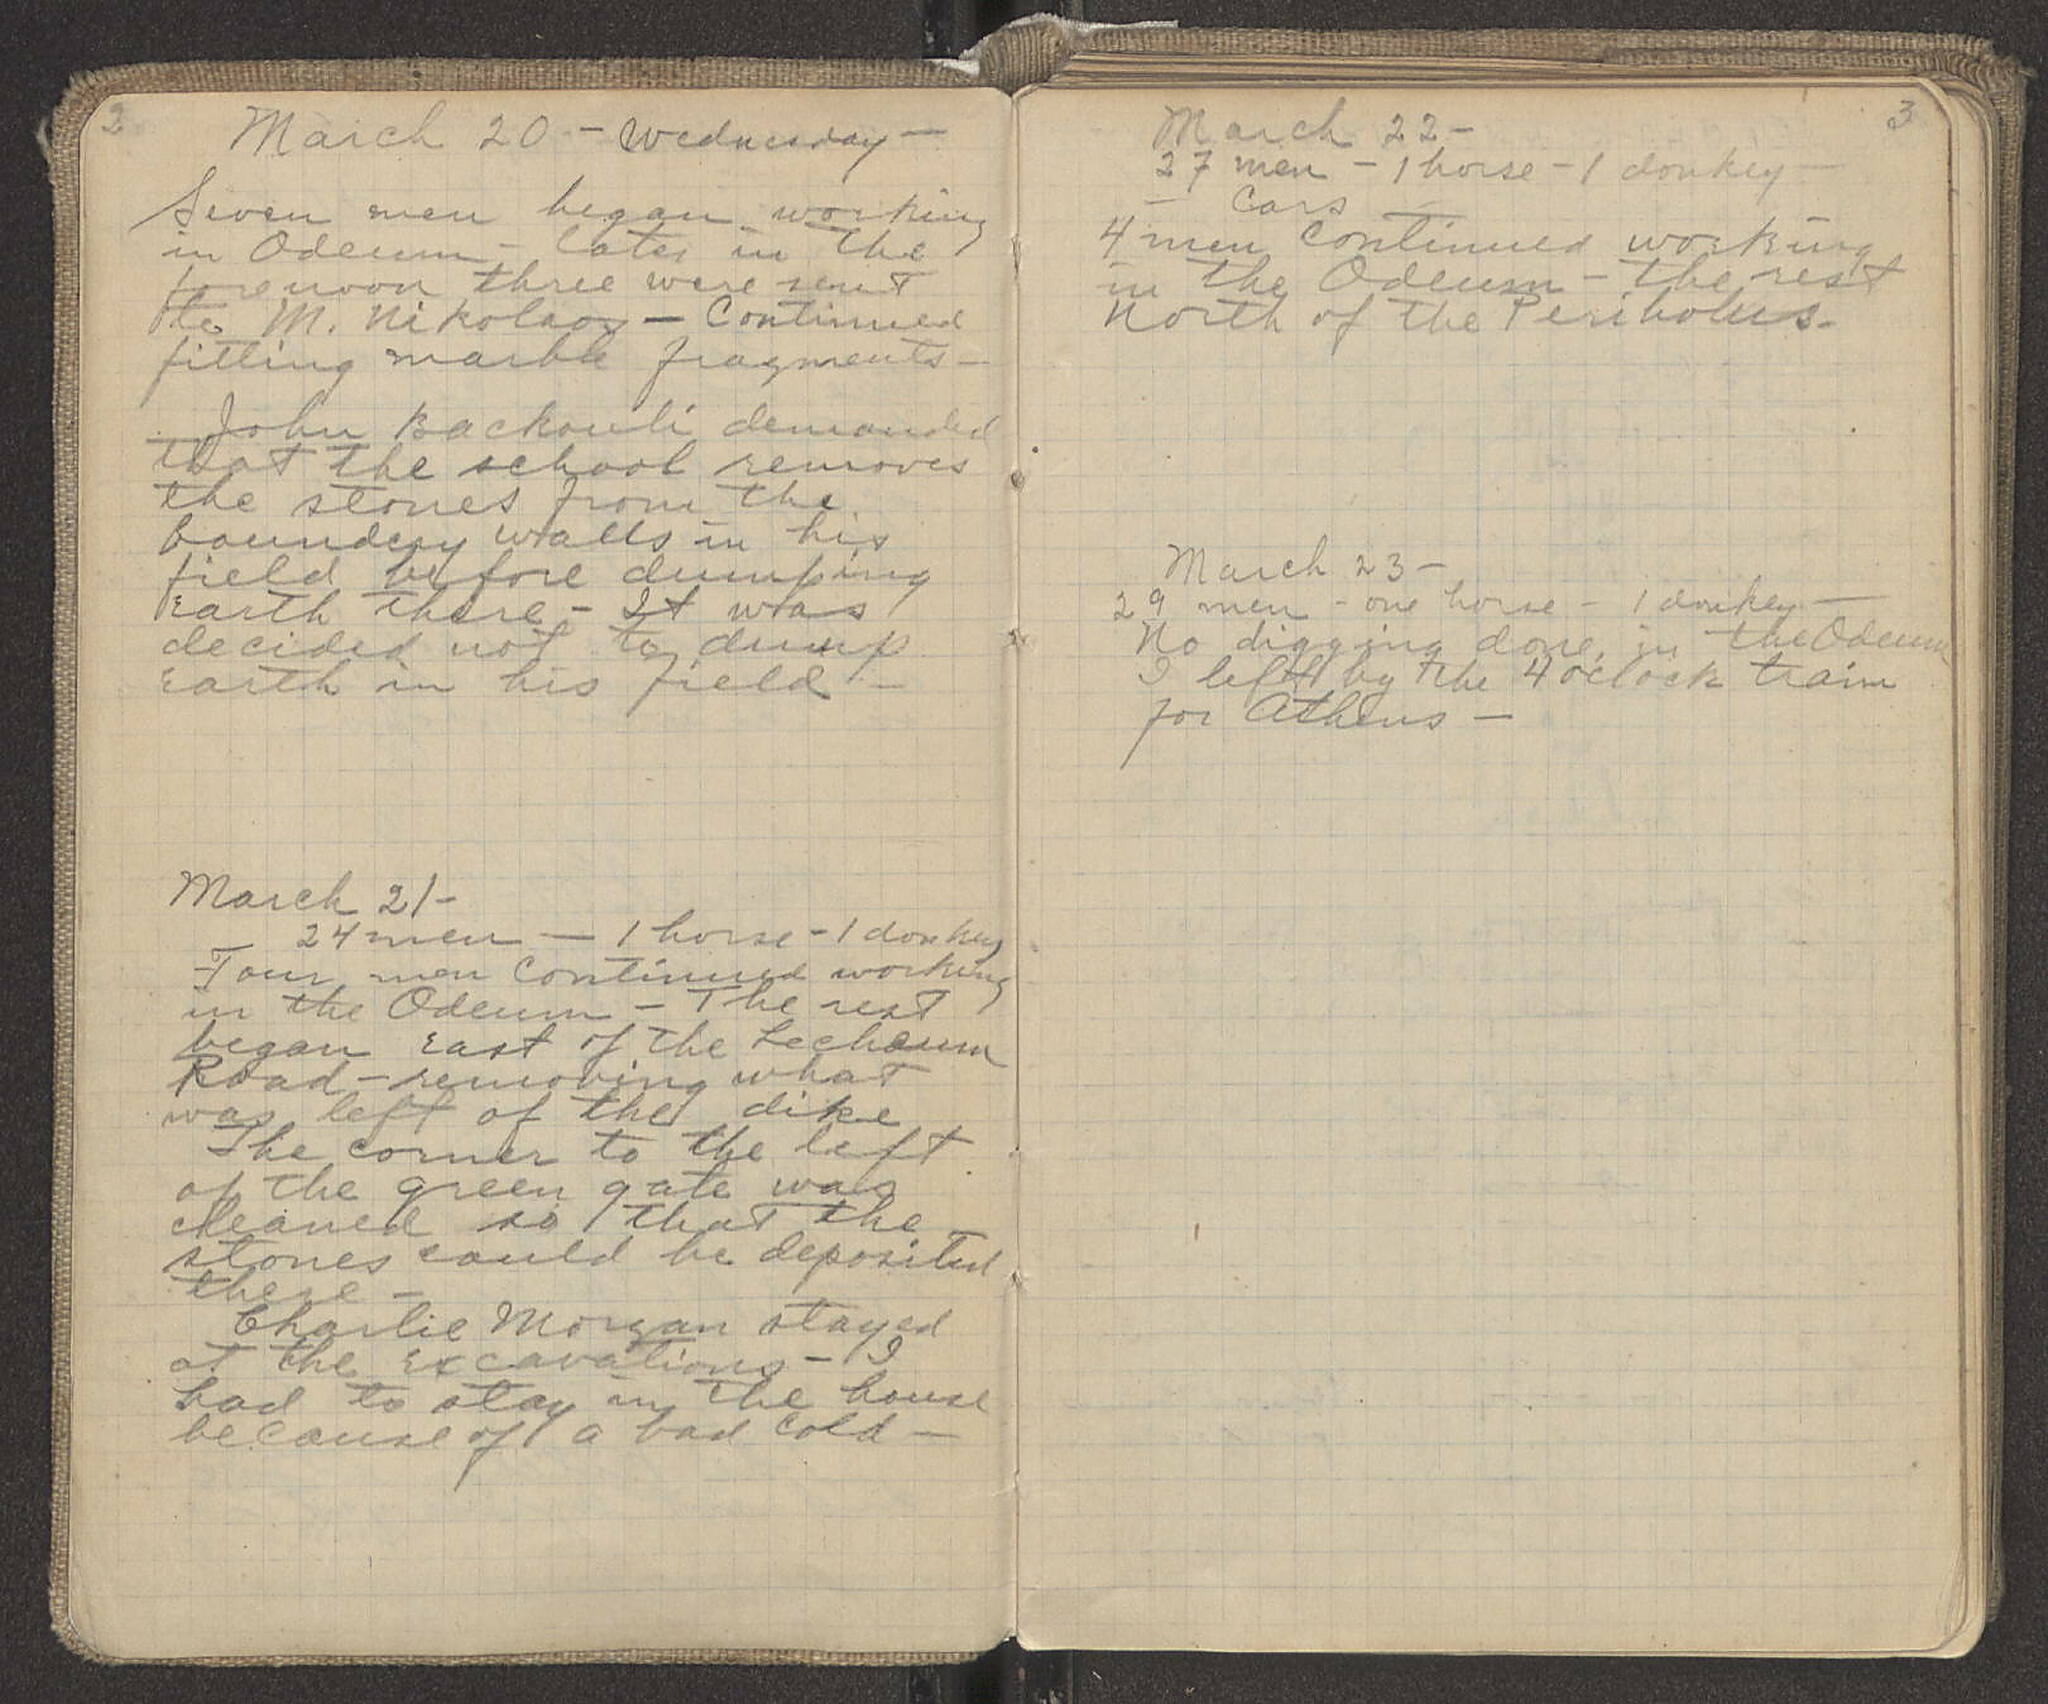 2
March 20 - Wednesday -
Seven men began working
in Odeum - later in the
forenoon three were sent
to M. Nikolaos - Continued
fitting marble fragments -
John Backouli demanded
that the school removes
the stones from the
boundery walls in his
field before dumping
Earth there - It was
decided not to dump
Earth in his field -
March 21 -
24 men - 1 horse - 1 donkey
Four men continued working
in the Odeum - The rest
began East of the Lechaeum
Road - removing what
was left of the dike
The corner to the left
of the green gate was
cleaned so that the
stones could be deposited
there -
Charlie Morgan stayed
at the Excavations - I
had to stay in the house
because of a bad cold -
3
March 22 -
27 men - 1 horse - 1 donkey -
- Cars
4 men continued working
in the Odeum - the rest
North of the Peribolus -
March 23 -
29 men - one horse - 1 donkey -
No digging done in the Odeum
I left by the 4 o'clock train
for Athens -